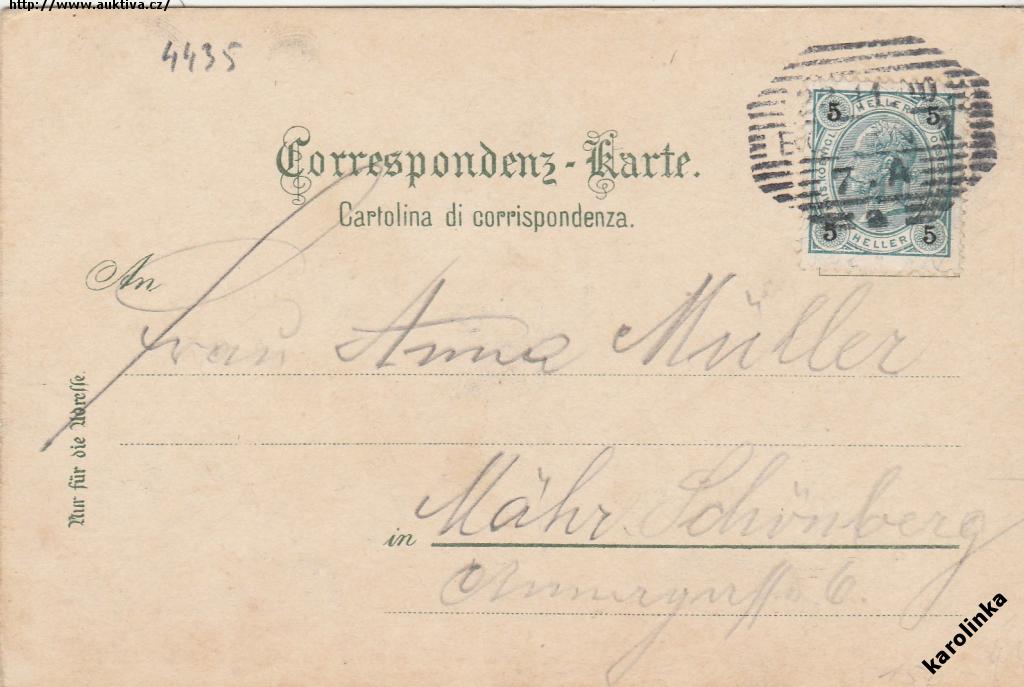 http://www.auktiva.cz/
4435
5 HELLER 5
7 A
5 HELLER 5
Correspondenz-Karte.
Cartolina di corrispondenza.
An
Frau Anna Müller
Nur für die Adresse.
in Mähr. Schönberg
Annagasse 6.
karolinka